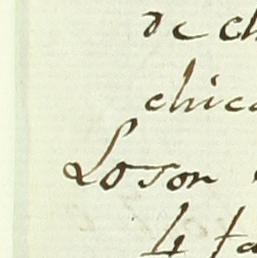 de ch
chica
Loson
4 fa